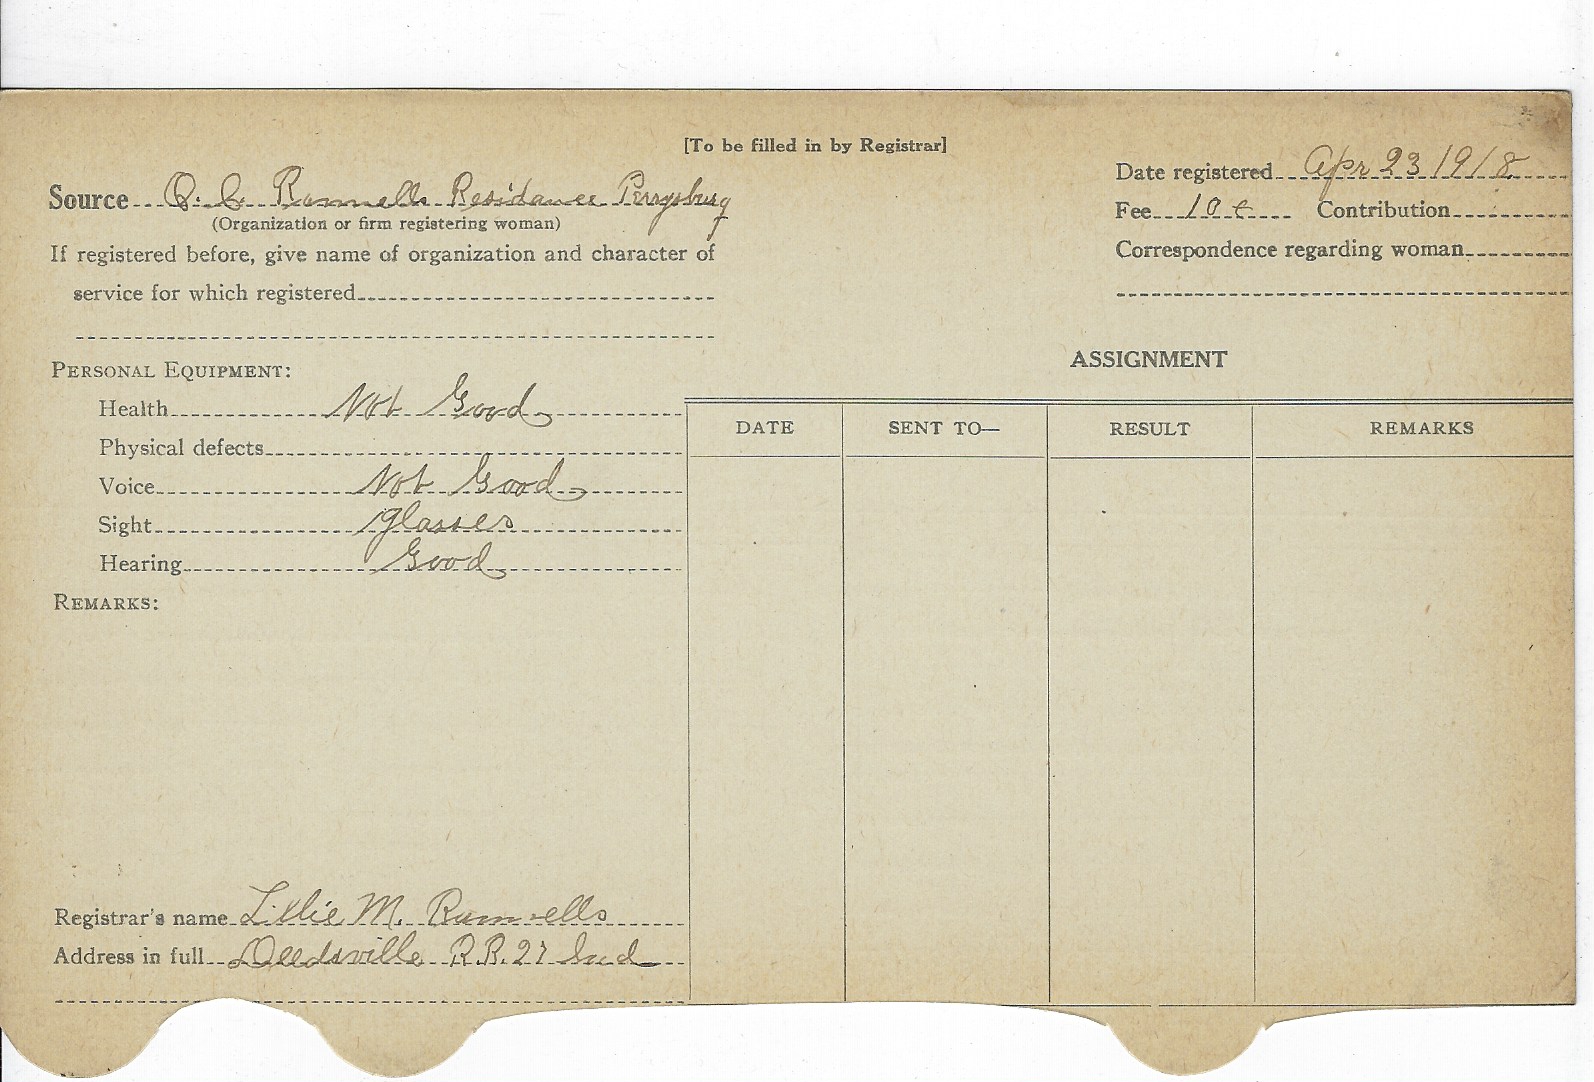 [To be filled in by Registrar]
Date registered Apr 23 1918
Source O. C. Rannells Residance Perrysburg
(Organization or firm registering woman)
Fee 10 ¢ Contribution
If registered before, give name of organization and character of
Correspondence regarding woman
service for which registered
PERSONAL EQUIPMENT:
ASSIGNMENT
Health Not Good
DATE SENT TO— RESULT REMARKS
Physical defects
Voice Not Good
Sight glasses
Hearing Good
REMARKS:
Registrar's name Lillie M. Rannells
Address in full Deedsville R.R. 27 Ind